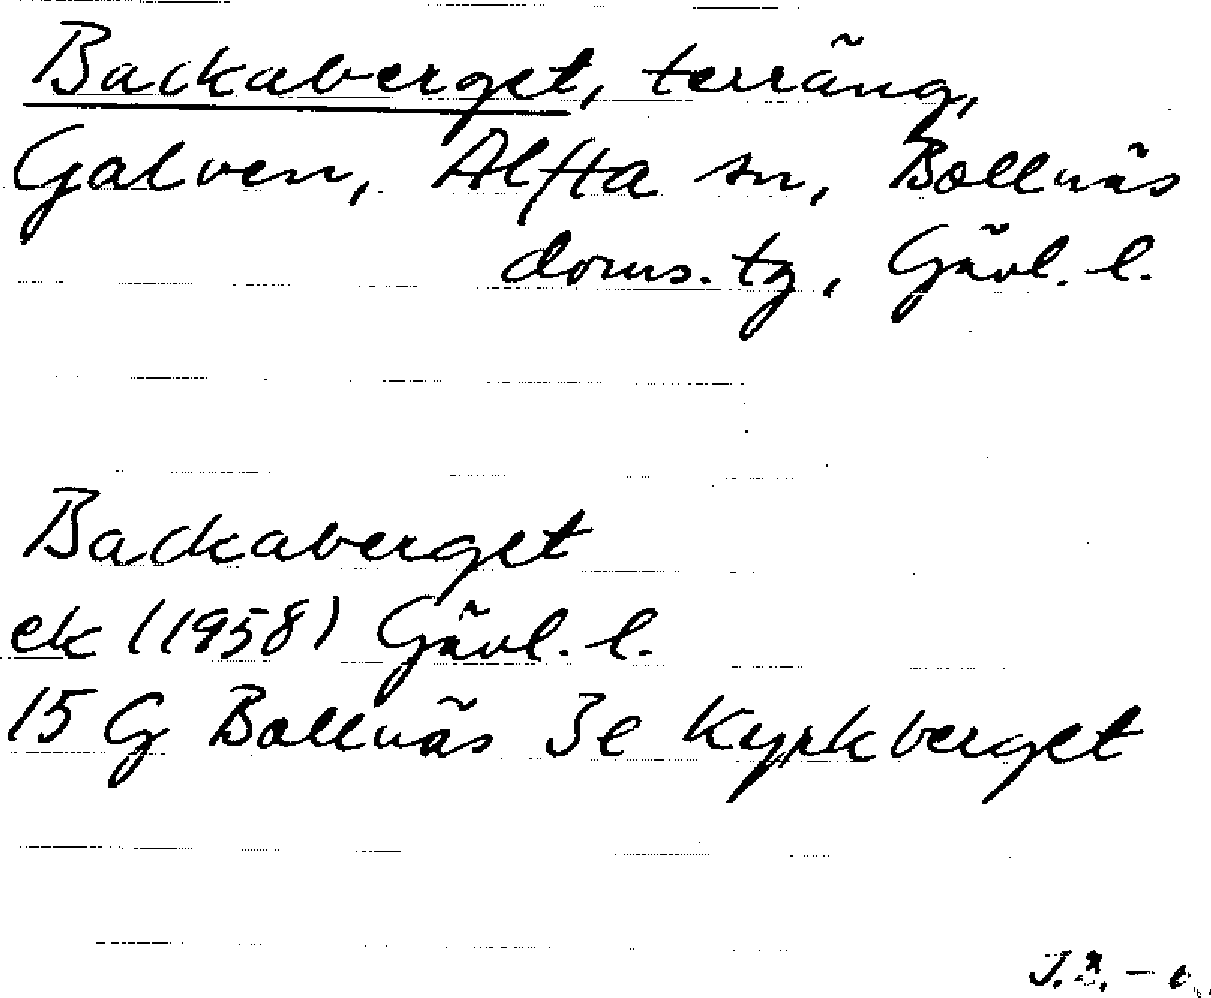 Backaberget, terräng,
Galven, Alfta sn, Bollnäs
doms. tg, Gävl. l.
Backaberget
ek (1958) Gävl. l.
15 G Bollnäs 3e Kyrkberget